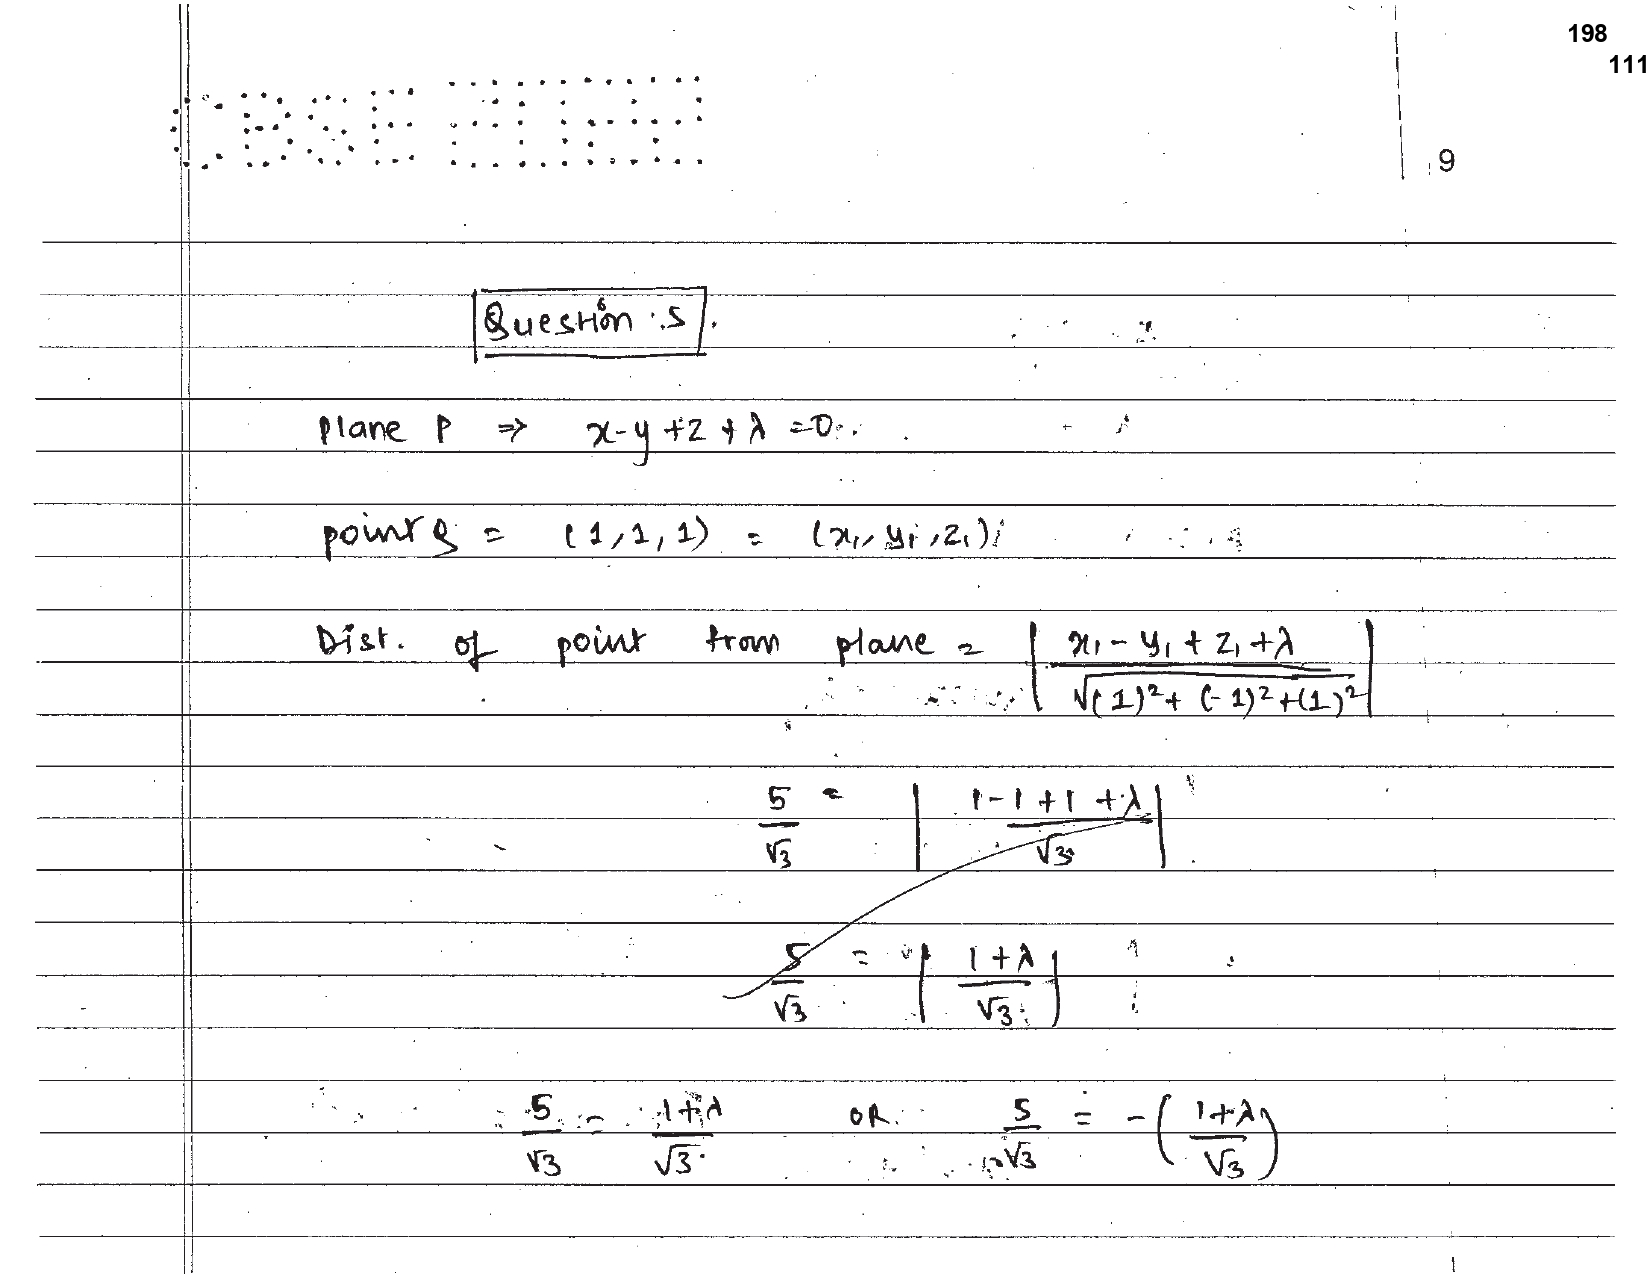 198
111
CBSE
9
Question : 5
plane P ⇒ x-y+z+λ=0
point Q = (1,1,1) = (x₁, y₁, z₁)
Dist. of point from plane = | x₁ - y₁ + z₁ + λ / √(1)²+(-1)²+(1)² |
5/√3 = | 1-1+1+λ / √3 |
5/√3 = | 1+λ / √3 |
5/√3 = 1+λ/√3 OR 5/√3 = -(1+λ/√3)